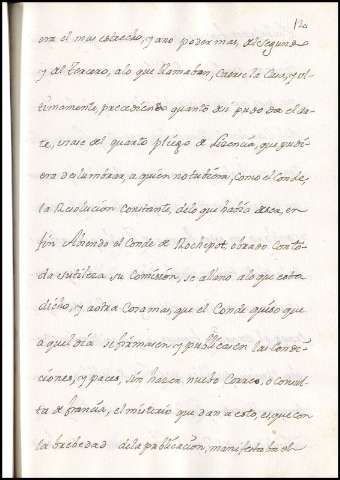 120
era el mas estrecho, y a no poder mas, del segundo
y del tercero, a lo que llamaban, Casas la Casa, y ul-
timamente, precediendo quanto de si pudo dar el ar-
te, usase del quarto pliego de licencia, que pudi-
era deslumbrar, a quien no tubiera, como el Conde,
la Resolucion Constante, de lo que havia de ser, en
fin Abiendo el Conde de Rochepot, obrado con to-
da sutileza su Comision, se allano a lo que esta
dicho, y a otra Cora mas, que el Conde quiso que
aquel dia se firmasen, y publicasen las Condi-
ciones, y paces, sin hacer nuebo Correo, o consul-
ta de francia, el misterio que dan a esto, es, que con
la brebedad de la publicacion, manifestaba el